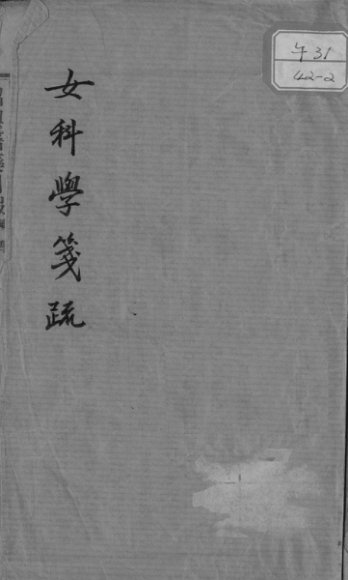 女科學箋疏
午31
42-2